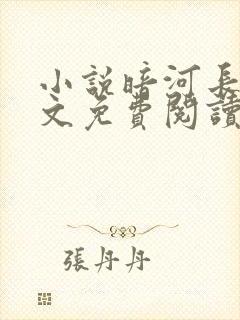 小說暗河長
文免費閱讀
張丹丹